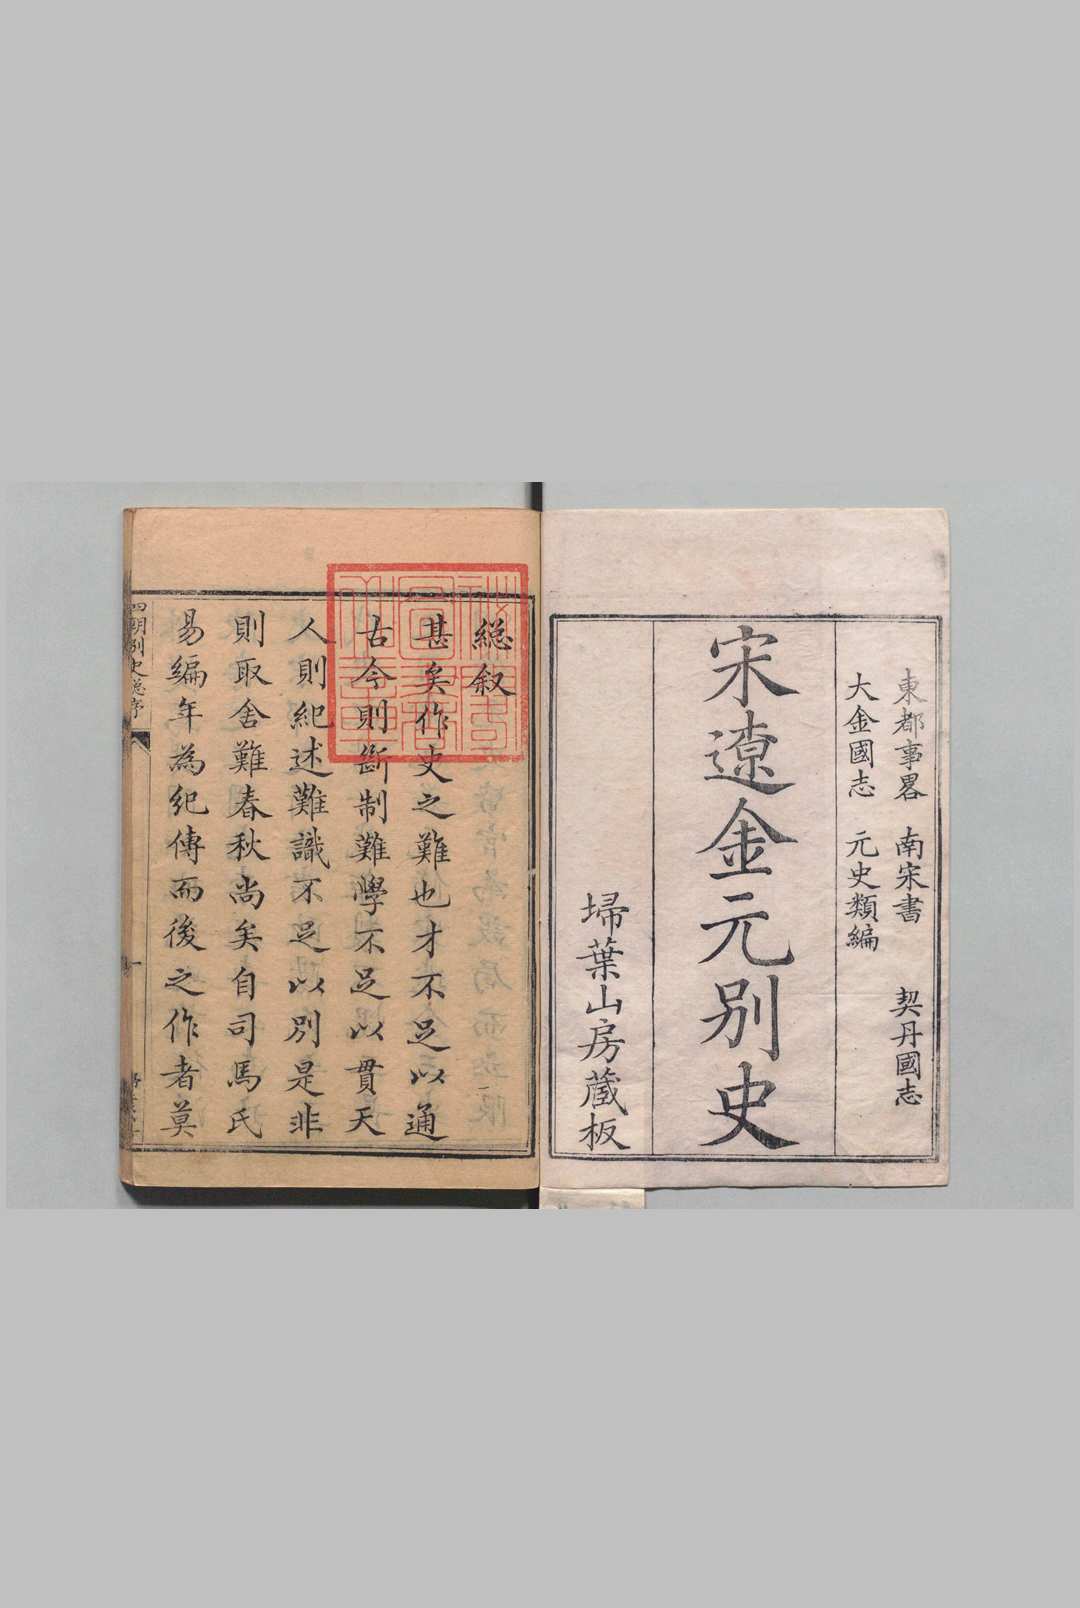 東都事畧 南宋書 契丹國志
大金國志 元史類編
宋遼金元別史
埽葉山房藏板
総叙
甚矣作史之難也才不足以通
古今則斷制難學不足以貫天
人則紀述難識不足以別是非
則取舍難春秋尚矣自司馬氏
易編年為紀傳而後之作者莫
四朝別史总序
一